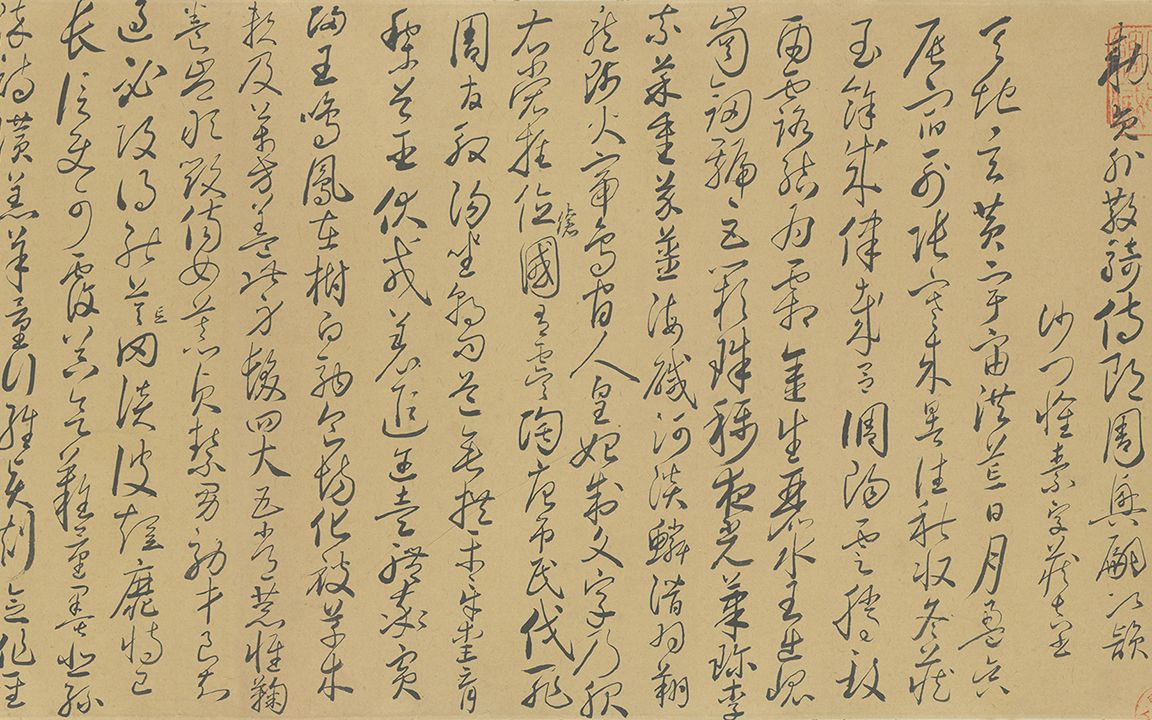 勅員外散騎侍郎周興嗣次韻
沙門懷素字藏真書
天地玄黃宇宙洪荒日月盈昃
辰宿列張寒來暑往秋收冬藏
閏餘成律歲呂調陽雲騰致
雨露結為霜金生麗水玉出崑
崗劍號巨闕珠稱夜光菓珍李
柰菜重芥薑海醎河淡鱗潛羽翔
龍師火帝鳥官人皇始制文字乃服
衣裳推位讓國有虞陶唐弔民伐罪
周發殷湯坐朝問道垂拱平章愛育
黎首臣伏戎羌遐邇壹體率賓
歸王鳴鳳在樹白駒食場化被草木
賴及萬方蓋此身髮四大五常恭惟鞠
養豈敢毀傷女慕貞潔男效才良知
過必改得能莫忘罔談彼短靡恃己
長信使可覆器欲難量墨悲絲
染詩讚羔羊景行維賢剋念作聖